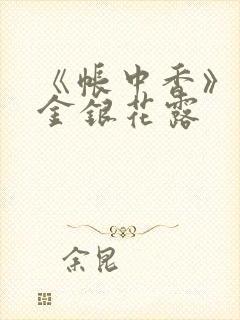 《帐中香》
金银花露
余昆